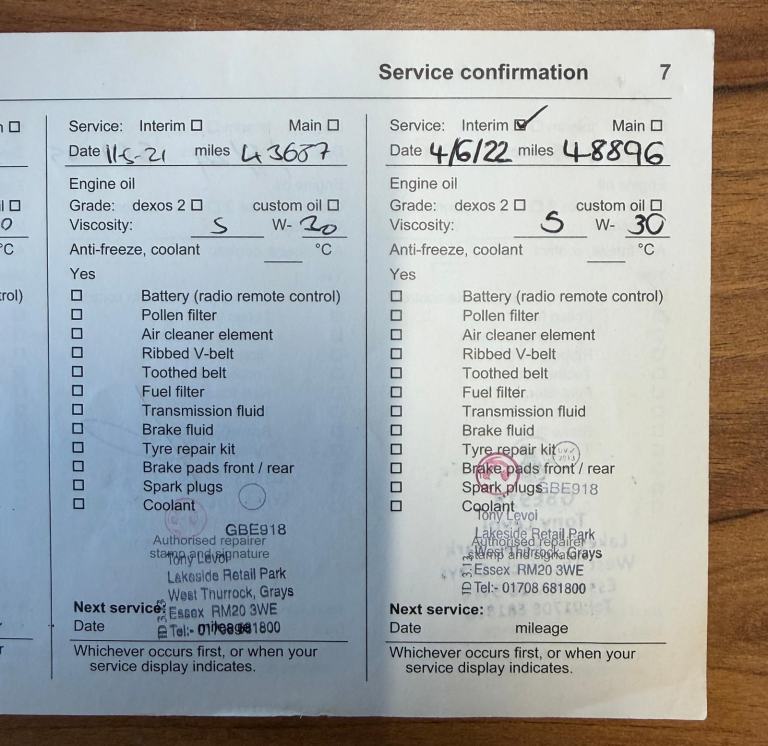 Service confirmation 7
Service: Interim ☐ Main ☐
Date 11-5-21 miles 43687
Engine oil
Grade: dexos 2 ☐ custom oil ☐
Viscosity: 5 W- 30
Anti-freeze, coolant ___ °C
Yes
☐ Battery (radio remote control)
☐ Pollen filter
☐ Air cleaner element
☐ Ribbed V-belt
☐ Toothed belt
☐ Fuel filter
☐ Transmission fluid
☐ Brake fluid
☐ Tyre repair kit
☐ Brake pads front / rear
☐ Spark plugs
☐ Coolant
GBE918
Authorised repairer
stamp and signature
Tony Levoi
Lakeside Retail Park
West Thurrock, Grays
Essex RM20 3WE
Tel:- 01708 681800
Next service:
Date mileage
Whichever occurs first, or when your
service display indicates.
Service: Interim ☑ Main ☐
Date 4/6/22 miles 48896
Engine oil
Grade: dexos 2 ☐ custom oil ☐
Viscosity: 5 W- 30
Anti-freeze, coolant ___ °C
Yes
☐ Battery (radio remote control)
☐ Pollen filter
☐ Air cleaner element
☐ Ribbed V-belt
☐ Toothed belt
☐ Fuel filter
☐ Transmission fluid
☐ Brake fluid
☐ Tyre repair kit
☐ Brake pads front / rear
☐ Spark plugs
GBE918
☐ Coolant
Tony Levoi
Lakeside Retail Park
Authorised repairer
stamp and signature
West Thurrock, Grays
Essex RM20 3WE
Tel:- 01708 681800
Next service:
Date mileage
Whichever occurs first, or when your
service display indicates.